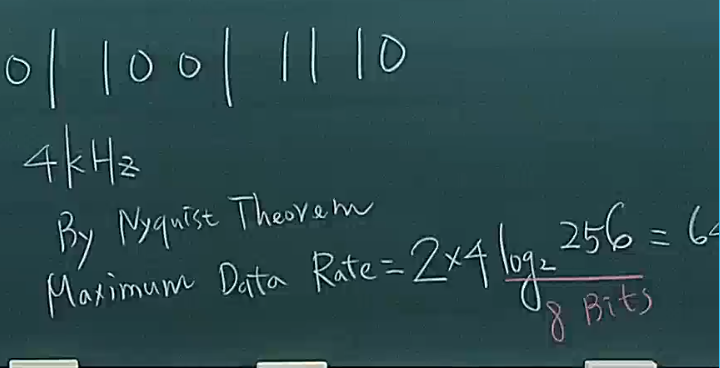 01100111110
4kHz
By Nyquist Theorem
Maximum Data Rate = 2×4 log₂ 256 = 6
8 Bits